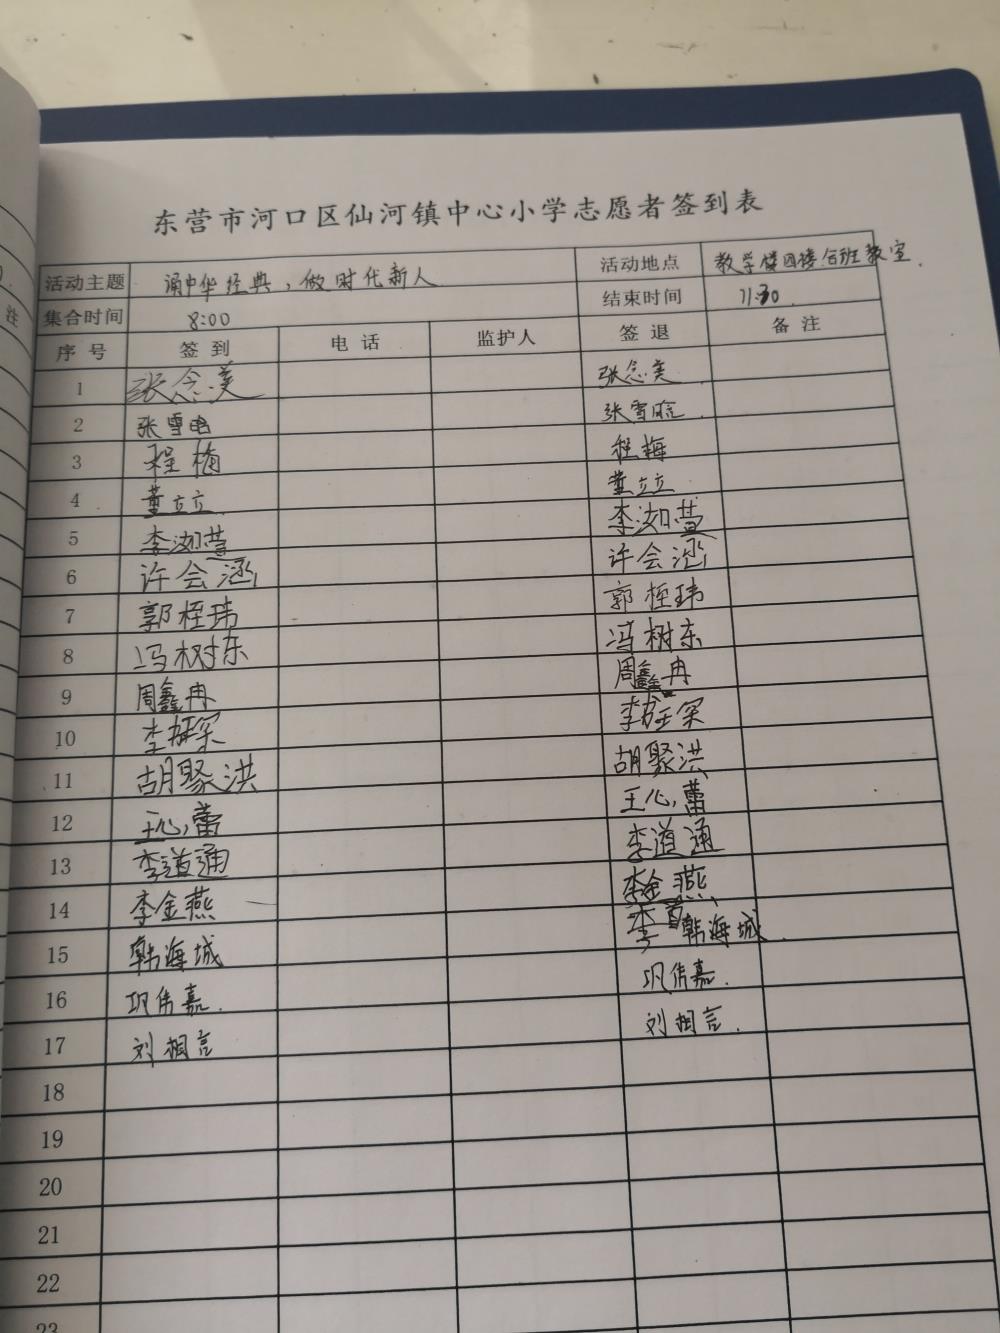 东营市河口区仙河镇中心小学志愿者签到表
活动主题 诵中华经典，做时代新人 活动地点 教学楼四楼合班教室.
集合时间 8:00 结束时间 11:30.
序号 签到 电话 监护人 签退 备注
1 张念美 张念美
2 张雪晗 张雪晗.
3 程梅 程梅
4 董立立 董立立
5 李洳萱 李洳萱
6 许会涵 许会涵
7 郭桎玮 郭桎玮
8 冯树东 冯树东
9 周鑫冉 周鑫冉
10 李 李
11 胡聚洪 胡聚洪
12 王心蕾 王心蕾
13 李道通 李道通
14 李金燕 李金燕
15 韩海城 韩海城.
16 巩伟嘉. 巩伟嘉.
17 刘相言 刘相言.
18
19
20
21
22
23
注